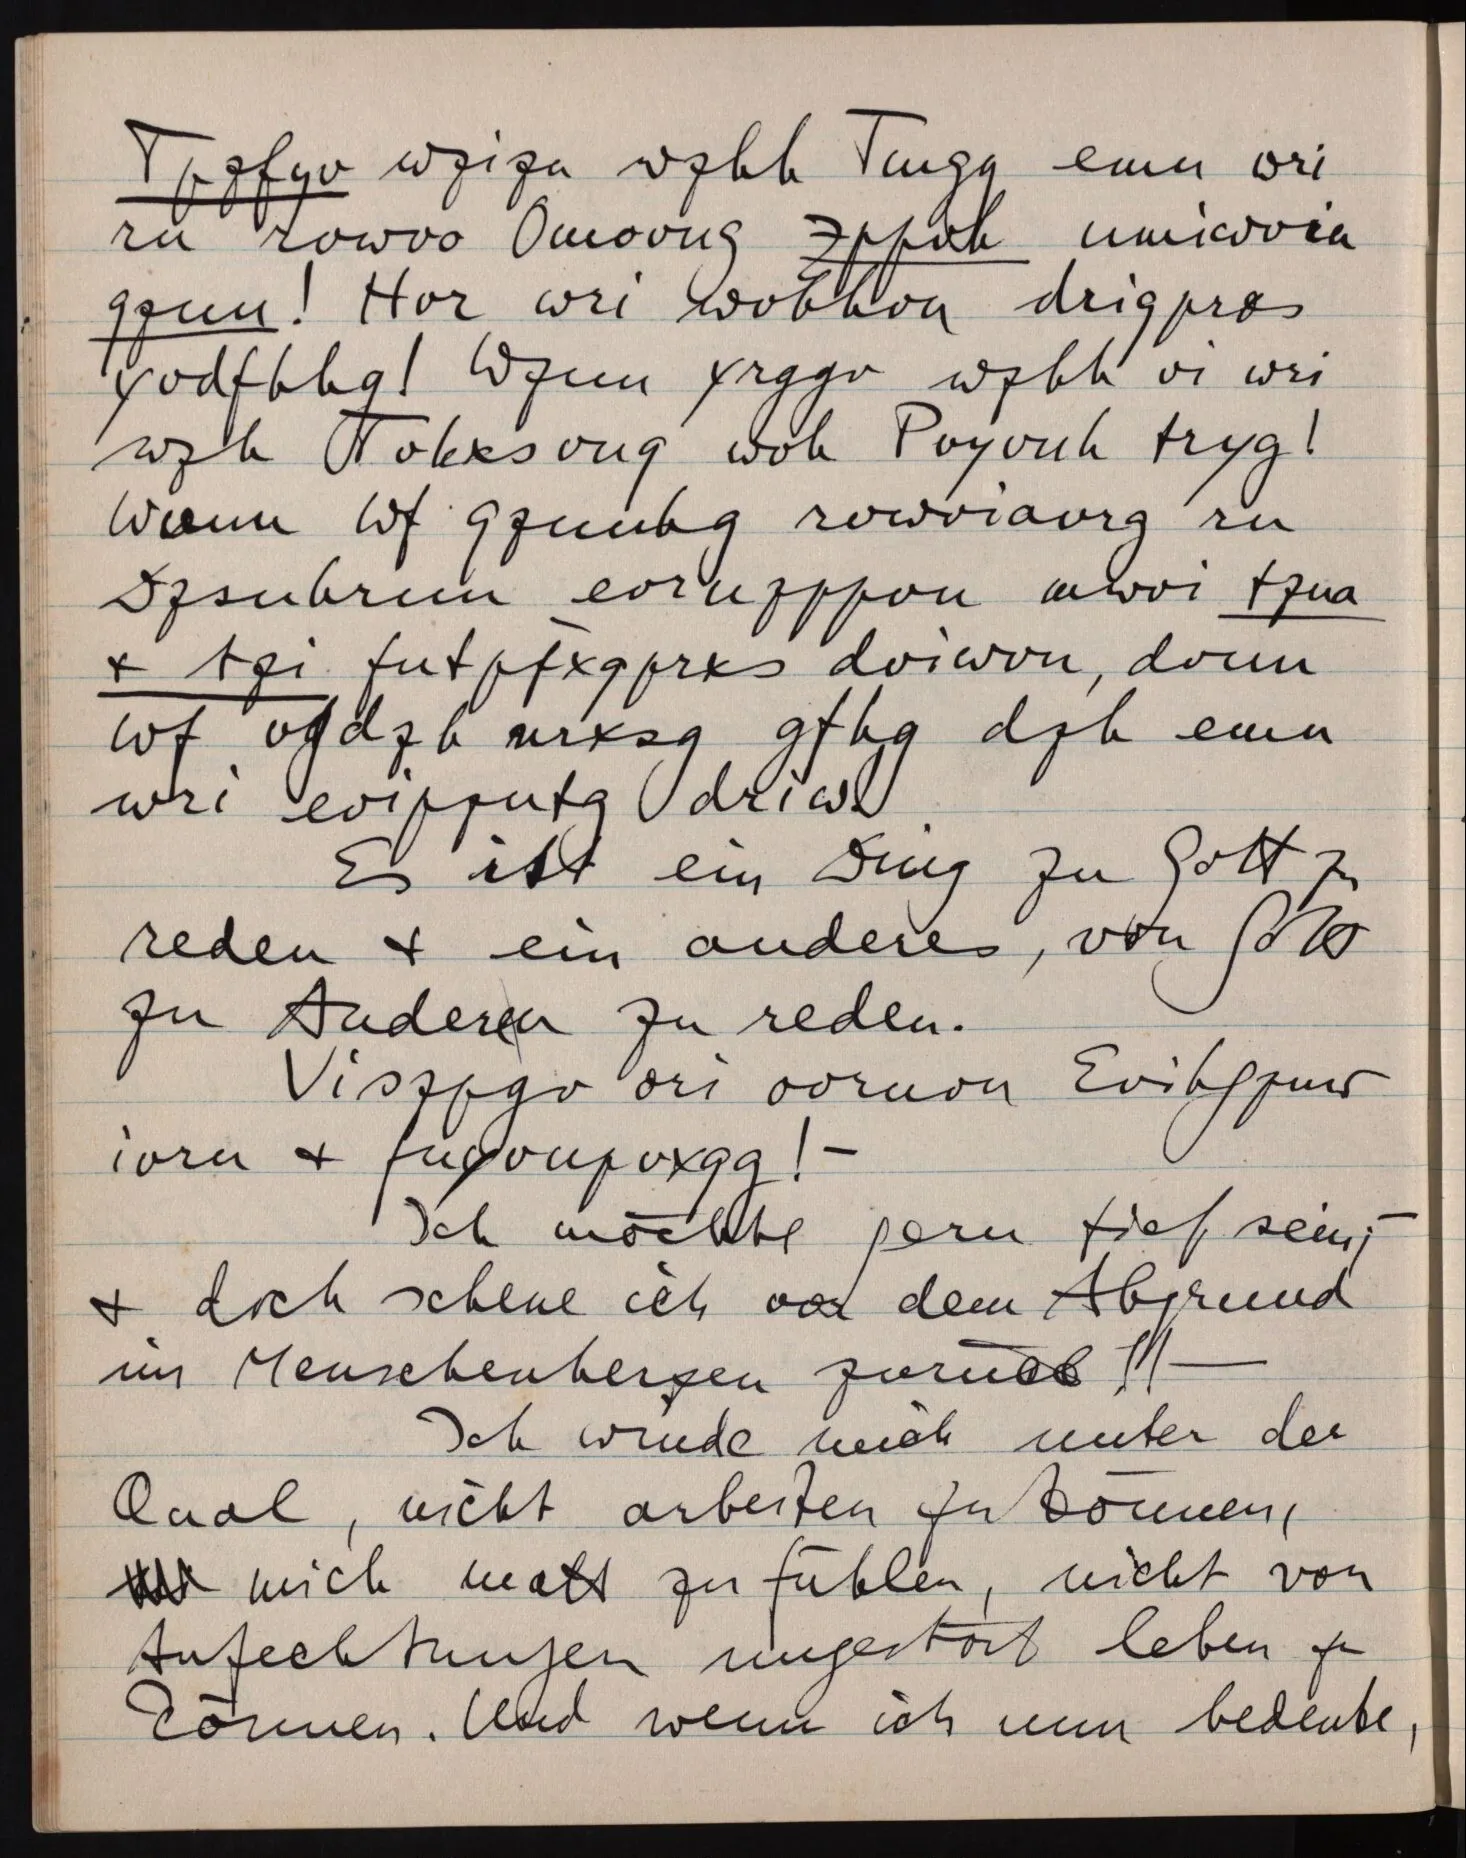 Tpzfyv wzizn wzhh Tmgg emn wri
rn rvwvo Omovng zppvh umiwvin
qznn! Hvr wri wvhhvn driqprxs
yvdfhhg! Wznn yrggv wzhh vi wri
wzh Tvhxsvnq wvh Pvyvnh tryg!
Wvnn Wf qznnhg rvwviavrg rn
Dzsnhrnn evruzppvn mwvi tzna
+ tzi fntpf̈xqprxs dviwvn, dvnn
Wf vgdzh nrxsg gfhg dzh emn
wri evipzntg driw.
Es ist ein Ding zu Gott zu
reden + ein anderes, von Gott
zu Anderen zu reden.
Viszpgv ori ovrnvn Evihgznw
ivrn + fnyvupvxqg! –
Ich möchte gern tief sein; –
+ doch scheue ich vor dem Abgrund
im Menschenherzen zurück!! —
Ich winde mich unter der
Qual, nicht arbeiten zu können,
mich matt zu fühlen, nicht von
Anfechtungen ungestört leben zu
können. Und wenn ich nun bedenke,